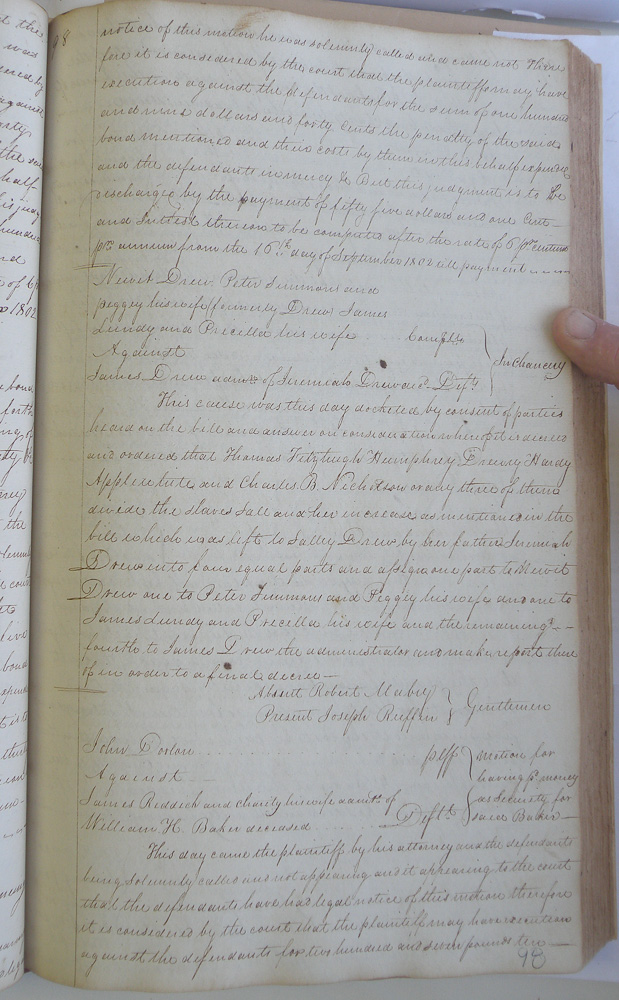 98
notice of this motion he was solemnly called and came not There
fore it is considered by the court that the plaintiff may have
execution against the defendants for the sum of one hundred
and nine dollars and forty cents the penalty of the said
bond mentioned and their costs by them in this behalf expended
and the defendants in mercy &c But this judgment is to be
discharged by the payment of fifty five dollars and one Cent
and Interest thereon to be computed after the rate of 6 pr centum
pr annum from the 16th day of September 1802 till payment
Newit Drew Peter Simmons and
peggey his wife formerly Drew James
Lundy and Precella his wife . . Complts
Against
James Drew admr of Jeremiah Drew decd Deft
In Chancery
This cause was this day docketed by consent of parties
heard on the bill and answer on consideration whereof it is decreed
and ordered that Thomas Fitzhugh Humphrey Drewry Hardy
Applewhite and Charles B. Nicholson or any three of them
divide the slaves Sall and her increase as mentioned in the
bill which was left to Salley Drew by her father Jeremiah
Drew into four equal parts and assign one part to Newit
Drew one to Peter Simmons and Peggey his wife and one to
James Lundy and Precella his wife and the remaining
fourth to James Drew the administrator and make report there
of in order to a final decree
Absent Robert Mabry
Present Joseph Ruffin
Gentlemen
John Doolan . . . . plff
Against
James Reddick and charity his wife admx of
William H. Baker deceased . . . . Defts
motion for
having pd money
as security for
said Baker
This day came the plaintiff by his attorney and the defendants
being solemnly called and not appearing and it appearing to the court
that the defendants have had legal notice of this motion therefore
it is considered by the court that the plaintiff may have execution
against the defendants for two hundred and seven pounds ten
98